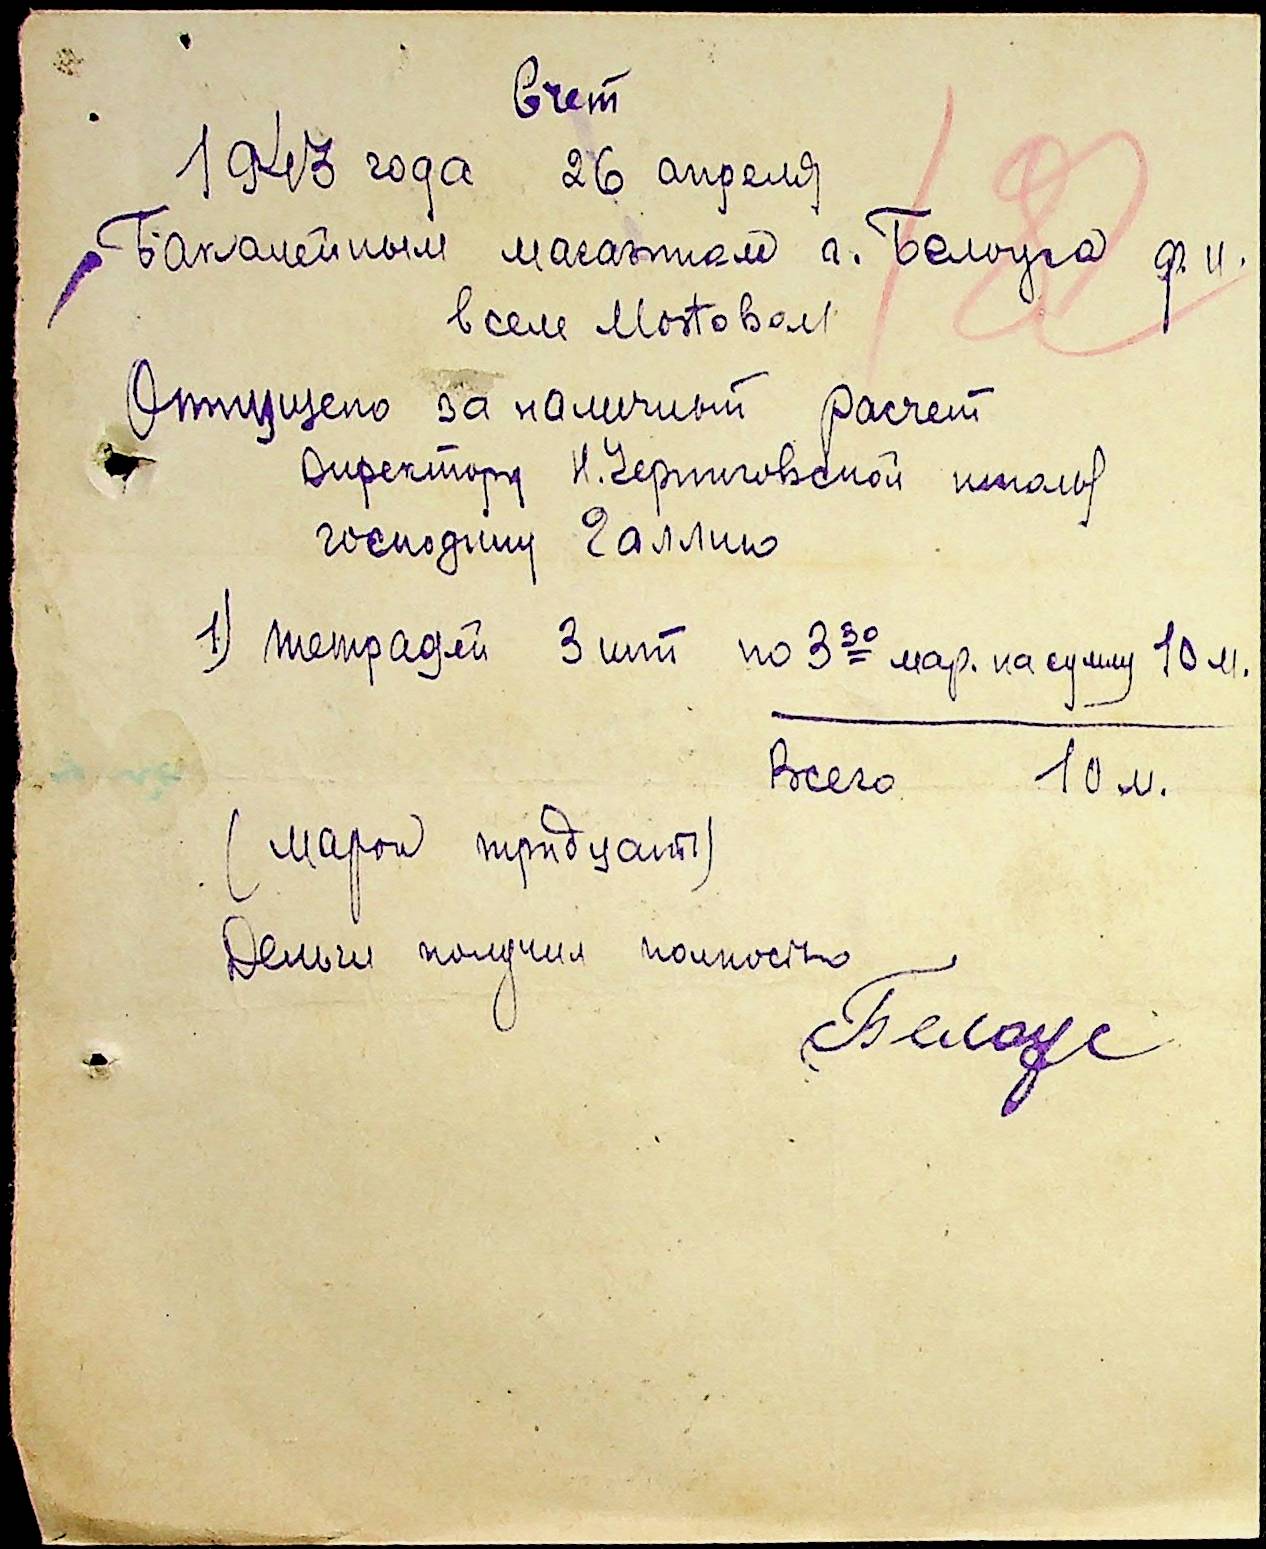 Счет
1943 года 26 апреля
Бакалейным магазином г. Белоуса ф. и.
в селе Мостовом
Отпущено за наличный расчет
директору Н. Черниговской школы
господину Галлию
1) тетрадей 3 шт по 3 30 мар. на сумму 10 м.
Всего 10 м.
(марок тридцать)
Деньги получил полностью
Белоус